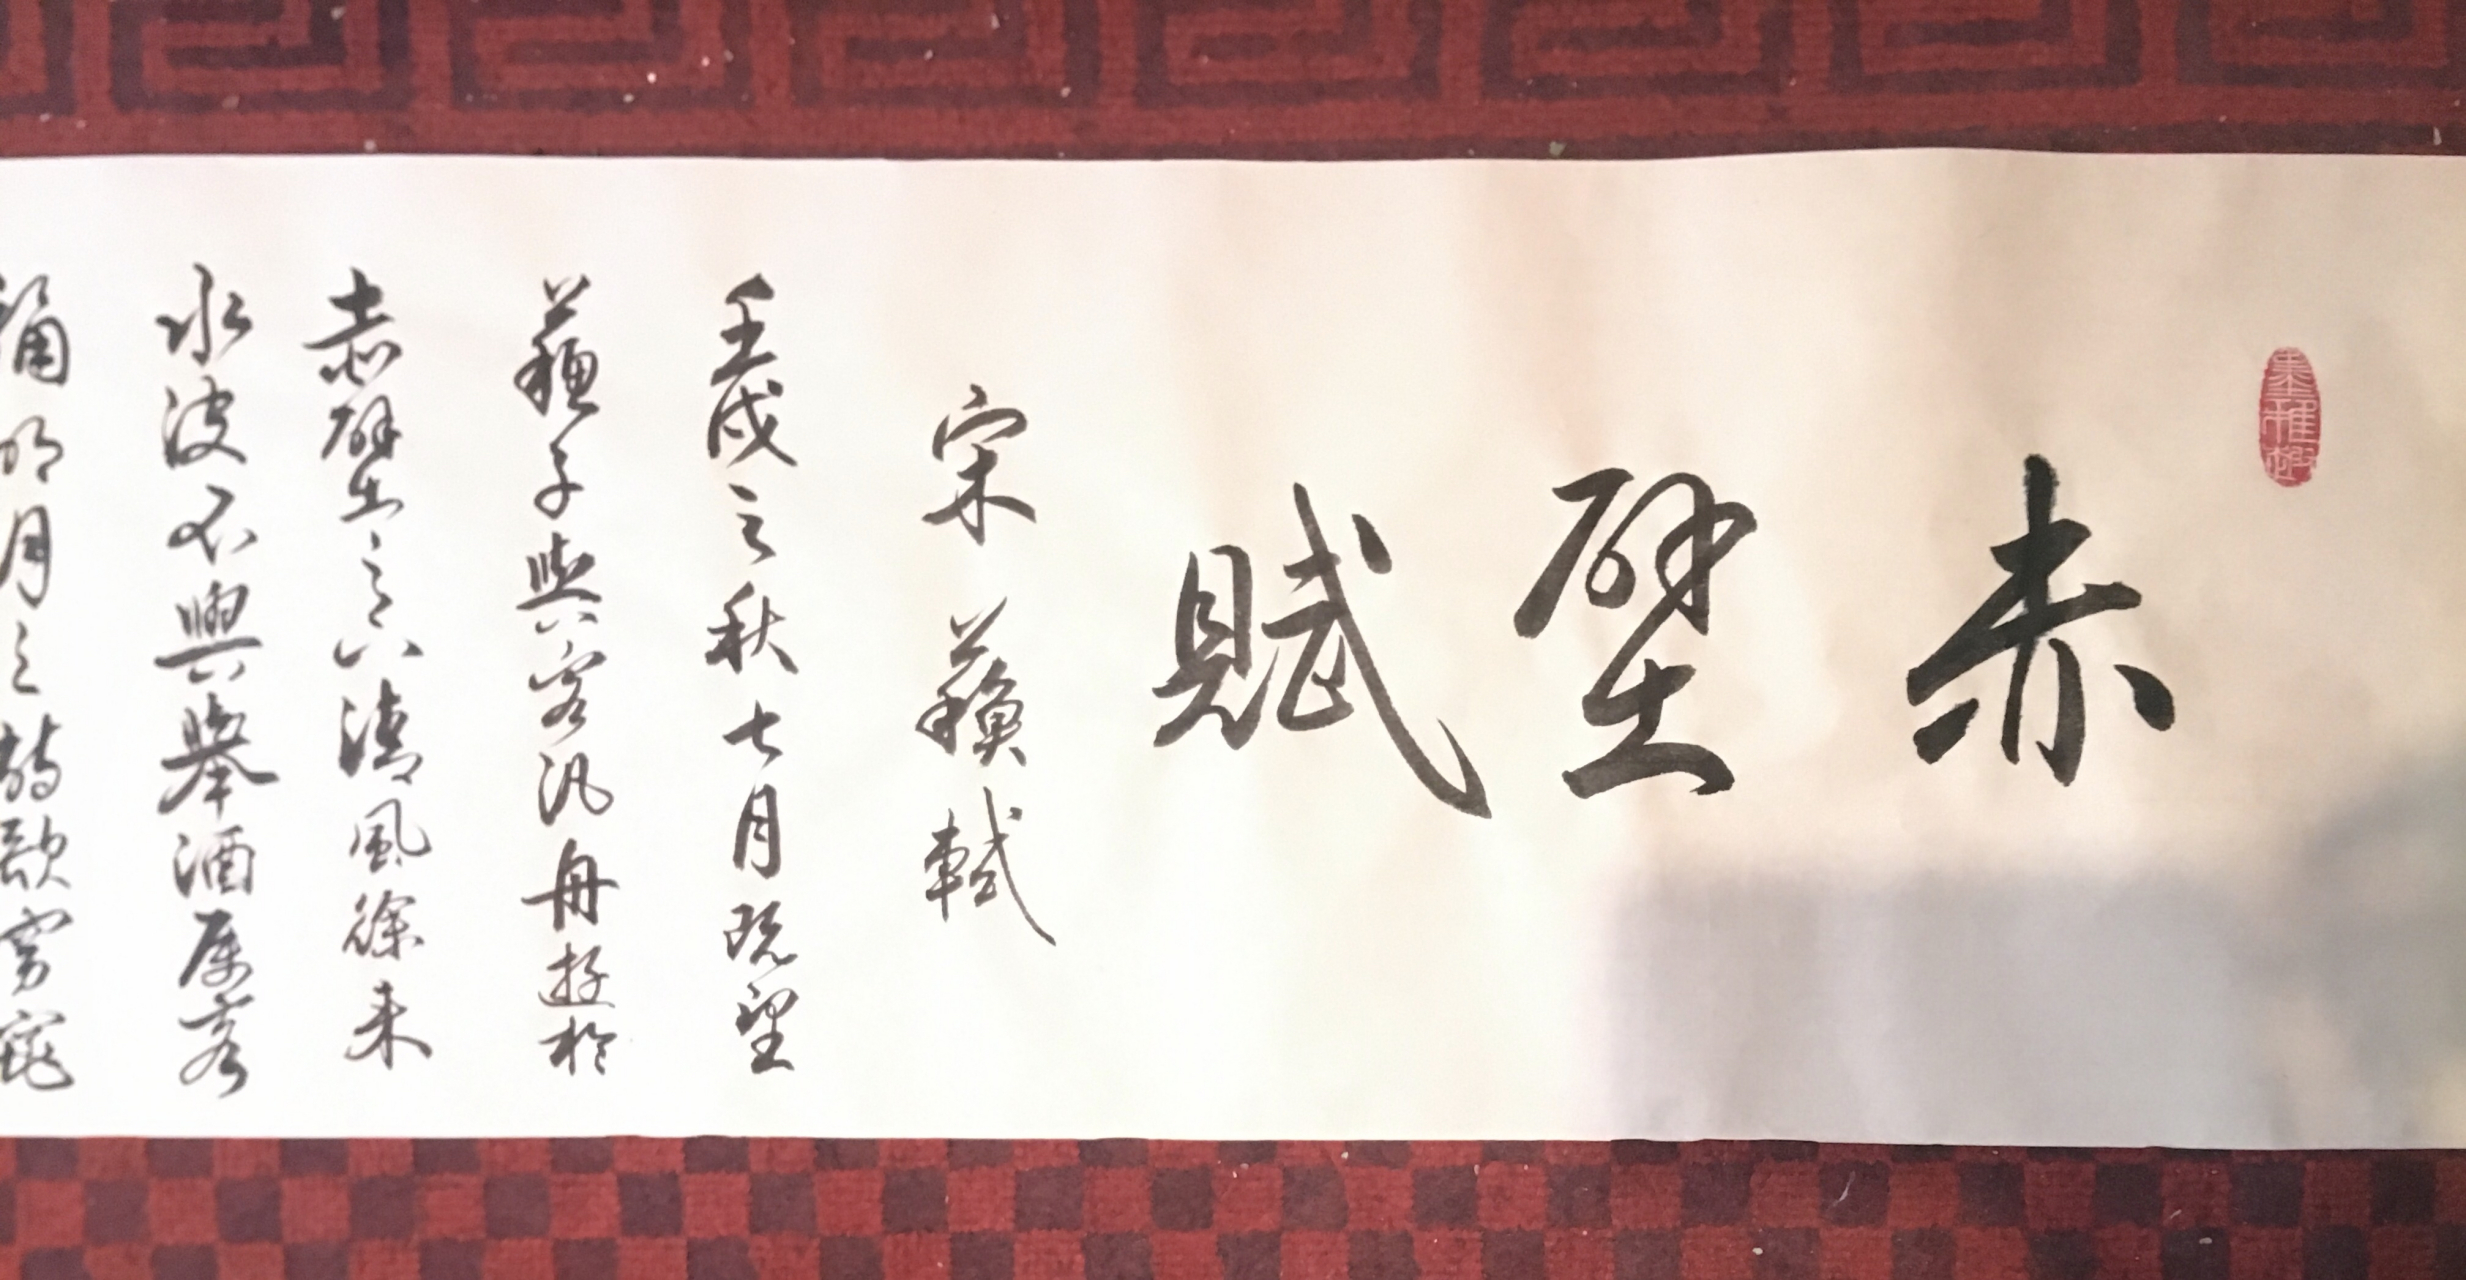 赤壁賦
宋蘇軾
壬戌之秋七月既望
蘇子與客汎舟遊於
赤壁之下清風徐來
水波不興舉酒属客
誦明月之詩歌窈窕